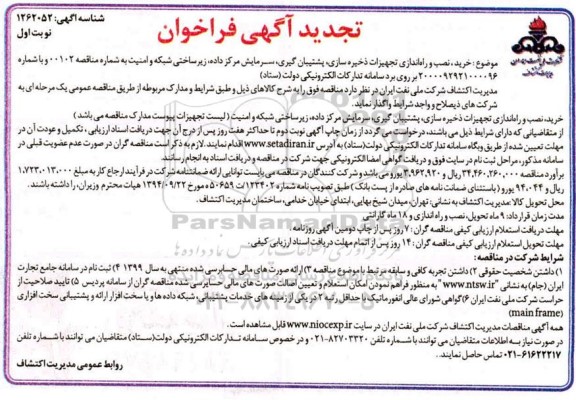 شناسه آگهی: ۱۲۶۲۰۵۲
نوبت اول
تجدید آگهی فراخوان
موضوع: خرید، نصب و راه‌اندازی تجهیزات ذخیره سازی، پشتیبان گیری، سرمایش مرکز داده، زیرساختی شبکه و امنیت به شماره مناقصه ۰۰۱۰۲ و با شماره
۲۰۰۰۰۹۲۹۲۱۰۰۰۰۹۶ بر روی برد سامانه تدارکات الکترونیکی دولت (ستاد)
مدیریت اکتشاف شرکت ملی نفت ایران در نظر دارد مناقصه فوق را به شرح کالاهای ذیل و طبق شرایط و مدارک مربوطه از طریق مناقصه عمومی یک مرحله ای به
شرکت های ذیصلاح و واجد شرایط واگذار نماید.
خرید، نصب و راه‌اندازی تجهیزات ذخیره سازی، پشتیبان گیری، سرمایش مرکز داده، زیرساختی شبکه و امنیت (لیست تجهیزات پیوست مدارک مناقصه می باشد)
از متقاضیانی که دارای شرایط ذیل می باشند، درخواست می گردد از زمان چاپ آگهی نوبت دوم تا حداکثر هفت روز پس از درج آن جهت دریافت اسناد ارزیابی، تکمیل و عودت آن در
مهلت تعیین شده از طریق وبگاه سامانه تدارکات الکترونیکی دولت(ستاد) به آدرس www.setadiran.ir اقدام نمایند. لازم به ذکر است مناقصه گران در صورت عدم عضویت قبلی در
سامانه مذکور، مراحل ثبت نام در سایت فوق و دریافت گواهی امضا الکترونیکی جهت شرکت در مناقصه و دریافت اسناد به انجام رسانند.
برآورد مناقصه ۳۴,۴۶۰,۲۶۰,۰۰۰ ریال و ۳,۹۶۲,۹۲۰ یورو می باشد و شرکت کنندگان در مناقصه می بایست توانایی ارائه ضمانتنامه شرکت در فرآیند ارجاع کار به مبلغ ۱,۷۲۳,۰۱۳,۰۰۰
ریال و ۹۴,۰۴۴ یورو (باستثنای ضمانت نامه های صادره از پست بانک) طبق تصویب نامه شماره ۱۲۳۴۰۲/ت ۵۰۶۵۹ ه مورخ ۱۳۹۴/۰۹/۲۲ هیات محترم وزیران، را داشته باشند.
محل تحویل کالا: مدیریت اکتشاف به نشانی: تهران، میدان شیخ بهایی، ابتدای خیابان خدامی، ساختمان مدیریت اکتشاف.
مدت زمان قرارداد: ۹ ماه تحویل، نصب و راه اندازی و ۱۸ ماه گارانتی
مهلت دریافت استعلام ارزیابی کیفی مناقصه گران: ۷ روز پس از چاپ دومین آگهی روزنامه.
مهلت تحویل استعلام ارزیابی کیفی مناقصه گران: ۱۴ روز پس از اتمام مهلت دریافت اسناد ارزیابی کیفی.
شرایط شرکت در مناقصه:
۱) داشتن شخصیت حقوقی ۲) داشتن تجربه کافی و سابقه مرتبط با موضوع مناقصه ۳) ارائه صورت های مالی حسابرسی شده منتهی به سال ۱۳۹۹ ۴) ثبت نام در سامانه جامع تجارت
ایران (جام) به نشانی "www.ntsw.ir" به منظور فراهم نمودن امکان استعلام و تعیین اصالت صورت های مالی حسابرسی شده مناقصه گران از سامانه پردیس ۵) تایید صلاحیت از
حراست شرکت ملی نفت ایران ۶) گواهی شورای عالی انفورماتیک با حداقل رتبه ۲ در یکی از زمینه های خدمات پشتیبانی، شبکه داده ها و یا سخت افزار ارائه و پشتیبانی سخت افزاری
(main frame)
همه آگهی مناقصات مدیریت اکتشاف شرکت ملی نفت ایران در سایت www.niocexp.ir قابل مشاهده است.
در صورت نیاز به اطلاعات متقاضیان می توانند با شماره تلفن ۸۲۷۰۳۳۲۰-۰۲۱ و در خصوص سامانه تدارکات الکترونیکی دولت(ستاد) متقاضیان می توانند با شماره تلفن
۶۱۶۲۲۲۱۷-۰۲۱ تماس حاصل نمایند.
روابط عمومی مدیریت اکتشاف
ParsNamadData